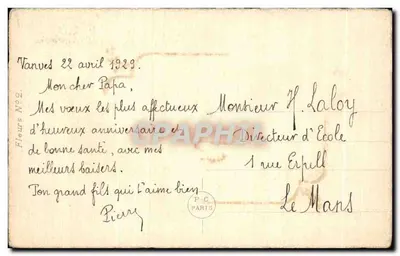 Vanves 22 avril 1929.
Mon cher Papa,
Mes vœux les plus affectueux
d'heureux anniversaire et
de bonne santé, avec mes
meilleurs baisers.
Ton grand fils qui t'aime bien
Pierre
Monsieur H. Laloy
Directeur d'École
1 rue Erpell
Le Mans
Fleurs No 2.
P.C.
PARIS